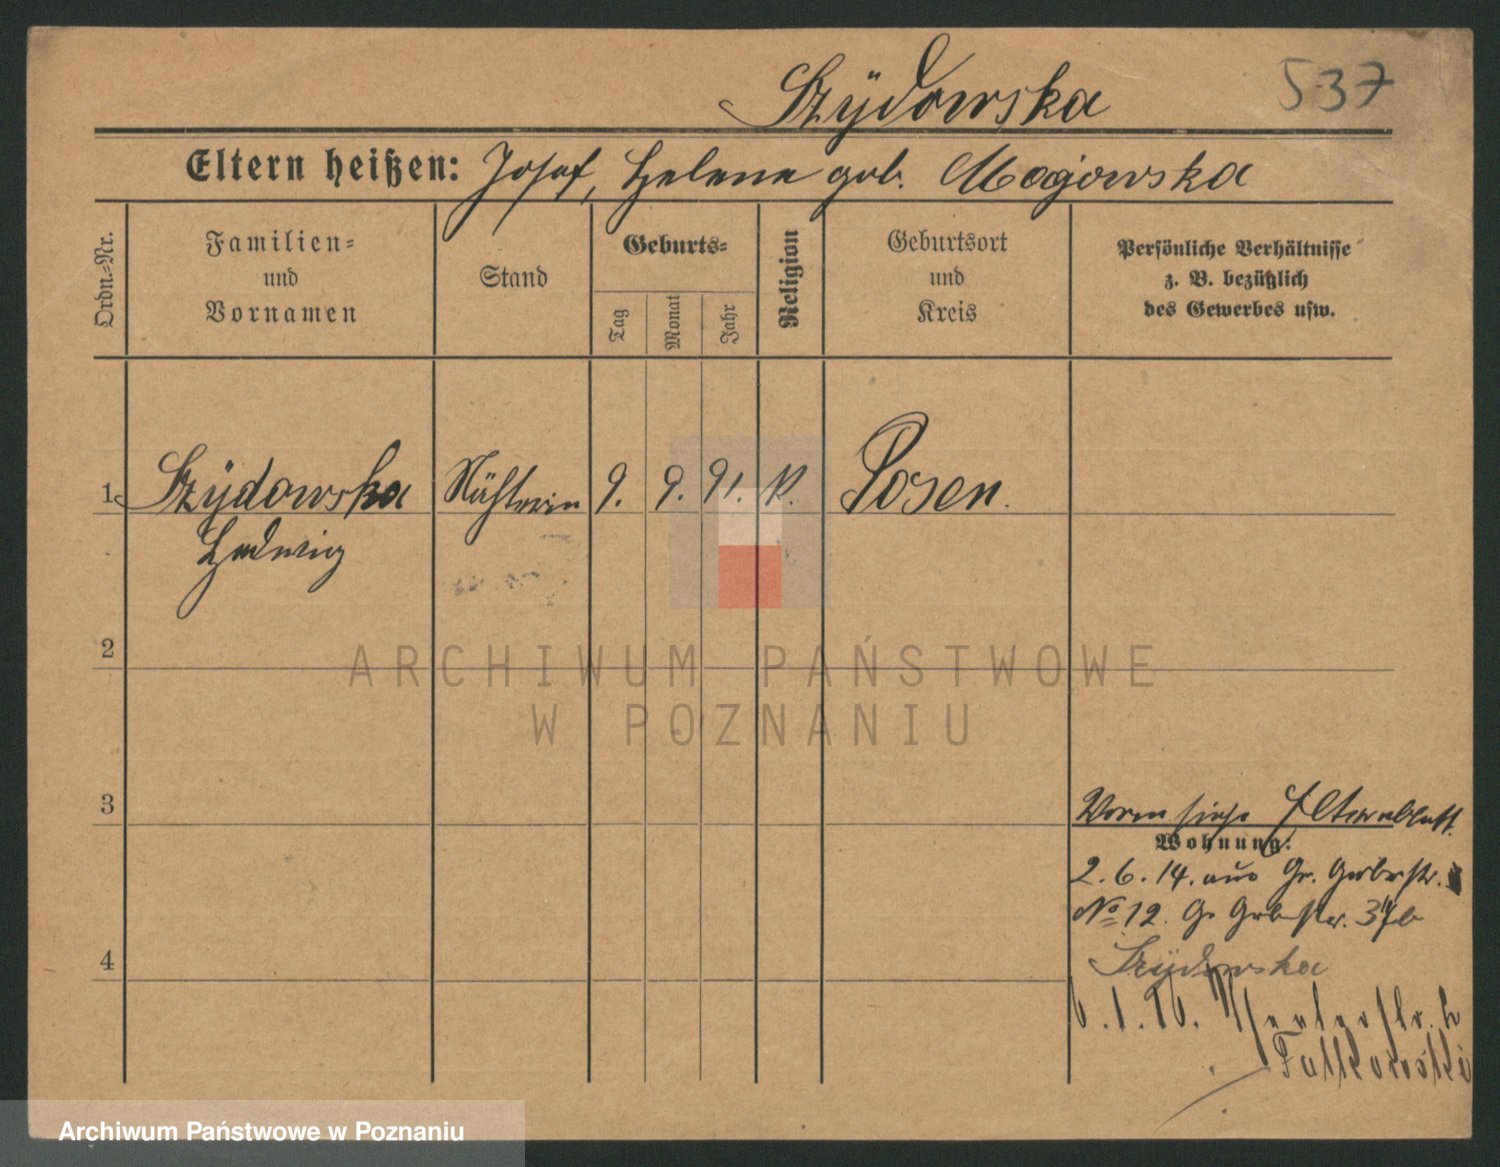 537
Szÿdowska
Eltern heißen: Josef, Helene geb. Magowska
Ordn.=Nr.
Familien= und Vornamen
Stand
Geburts=
Tag
Monat
Jahr
Religion
Geburtsort und Kreis
Persönliche Verhältnisse
z. B. bezüglich
des Gewerbes usw.
1 Szÿdowska Nähterin 9. 9. 91. k. Posen.
Hedwig
2
ARCHIWUM PAŃSTWOWE
W POZNANIU
3
Voren siehe Elternblatt.
Wohnung:
2.6.14. aus Gr. Gerberstr.
No 12. Gr Gerberstr.
4
Szÿdowska
6.1.16.
Archiwum Państwowe w Poznaniu